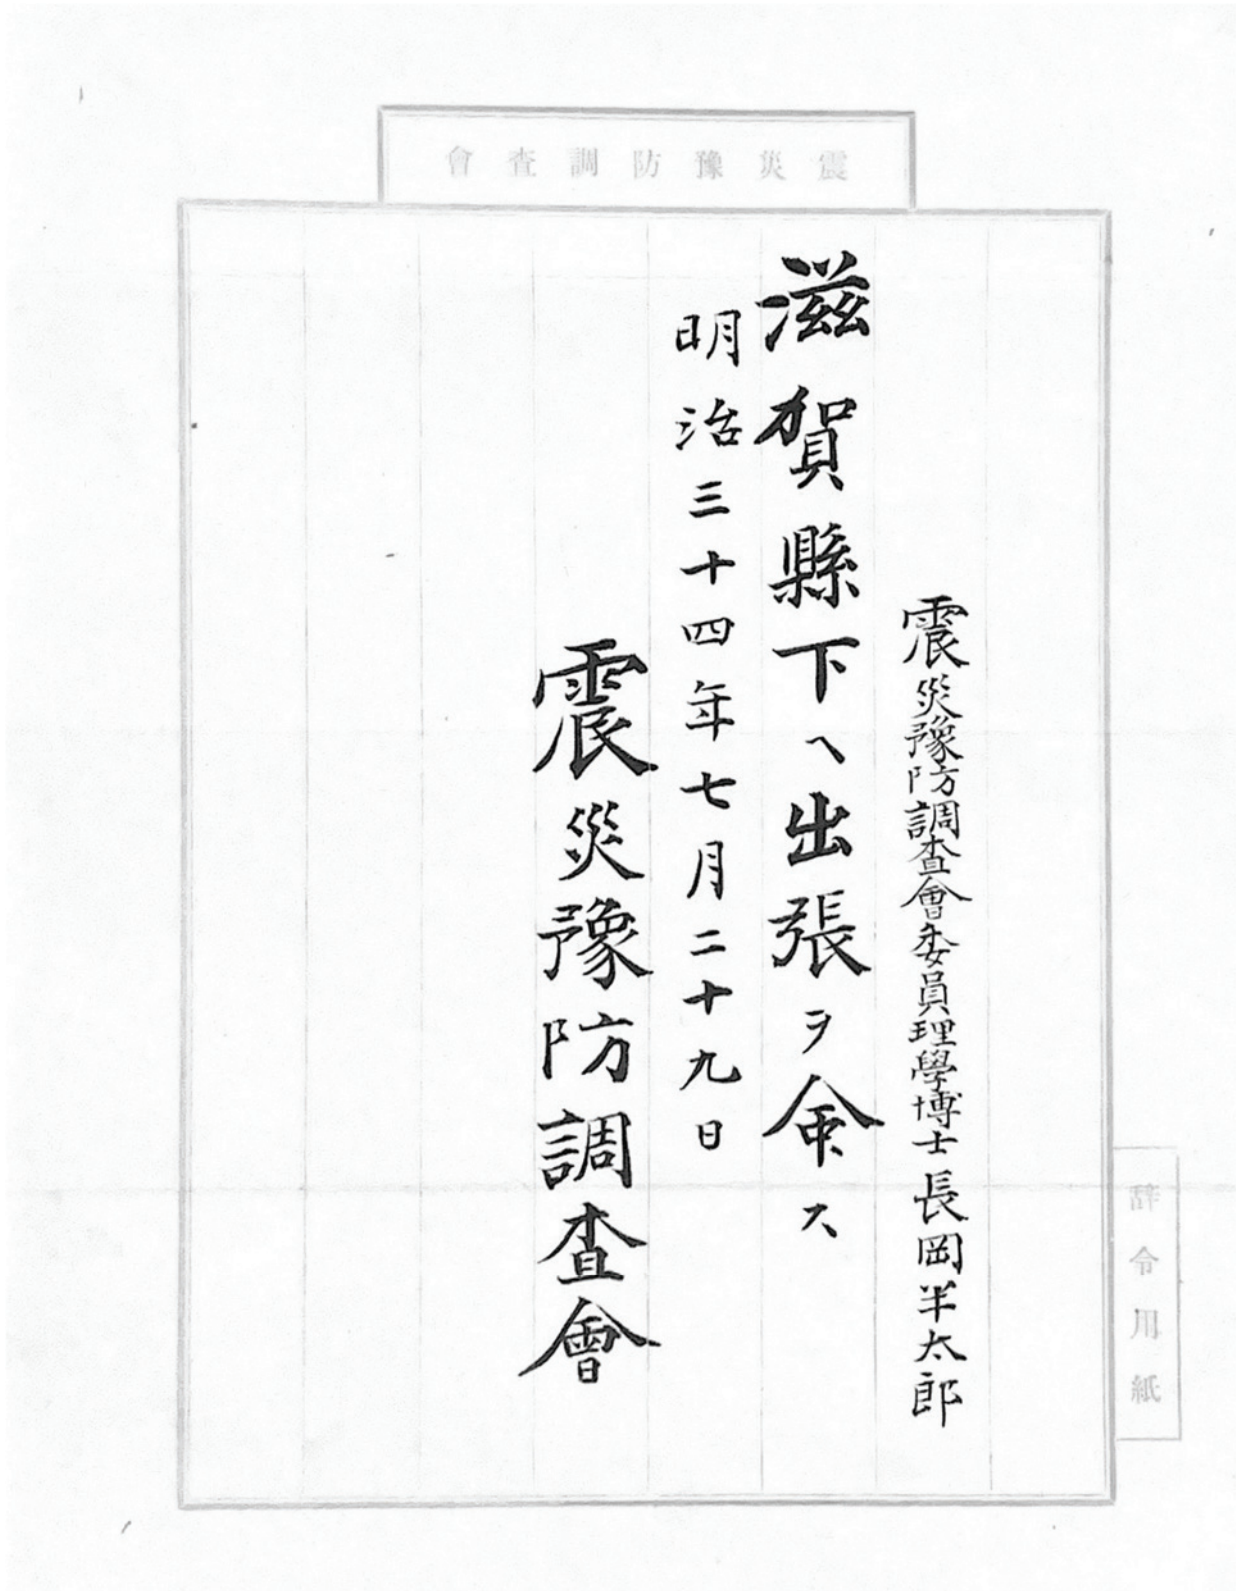 震災豫防調査會
震災豫防調査會委員理學博士長岡半太郎
滋賀縣下ヘ出張ヲ命ス
明治三十四年七月二十九日
震災豫防調査會
辞令用紙